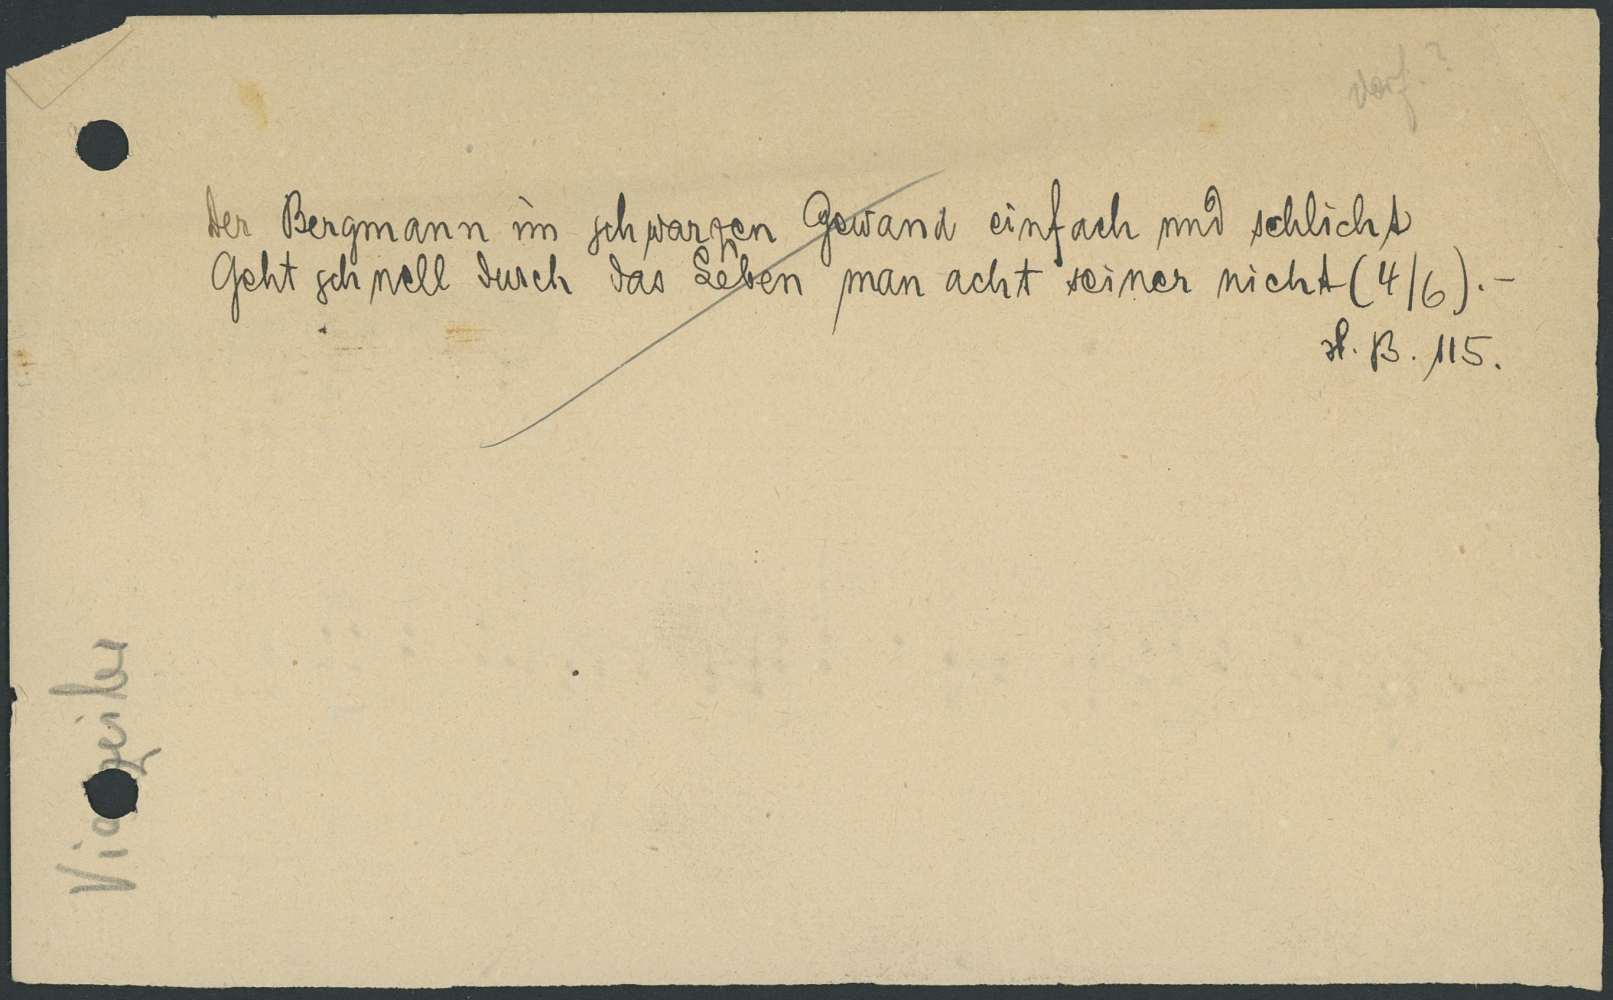 vorf.?
Der Bergmann im schwarzen Gewand einfach und schlicht
Geht schnell durch das Leben man acht seiner nicht (4/6). -
B. 115.